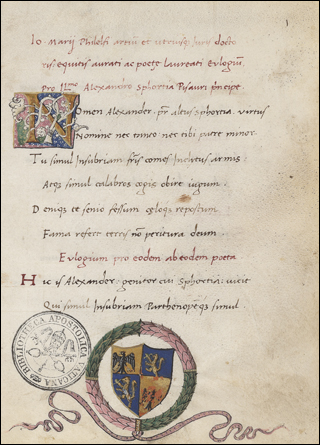 1
Io. Marij Philelfi artiũ et utriusq; Iuris docto
ris equitis aurati ac poetę laureati Eulogiũ
pro Ill.mo Alexandro Sphortia Pisauri pñcipe
Nomen Alexander. pr̃ altus Sphortia. virtus
Nomine nec minor nec tibi patre minor.
Tu simul Insubriam fr̃is comes Inclitus armis
Atq; simul calabros cogis obire iugum.
Deniq; te senio fessum cęloq; repostum
Fama refert terris nõ peritura deum.
Eulogium pro eodem ab eodem poeta
Hic is Alexander: genitor cui Sphortia: vicit
Qui simul Insubriam Parthonopẽq; simul.
BIBLIOTHECA APOSTOLICA VATICANA